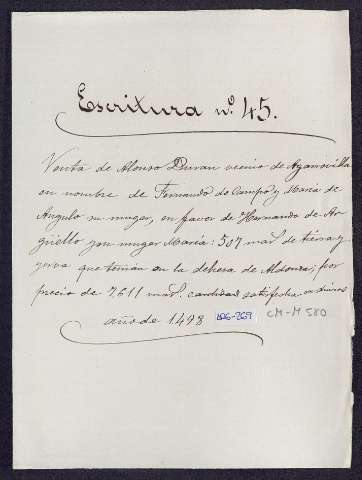 Escritura nº 45.
Venta de Alonso Duran vecino de
en nombre de Fernando do Campo y Maria de
Angulo su muger, en favor de Hernando de Ar-
güello y su muger Maria: 507 mad. de tierra y
yerva que tenian en la dehesa de Aldonza, por
precio de 7,611 mad. cantidad satisfecha
año de 1498 CM-M 580